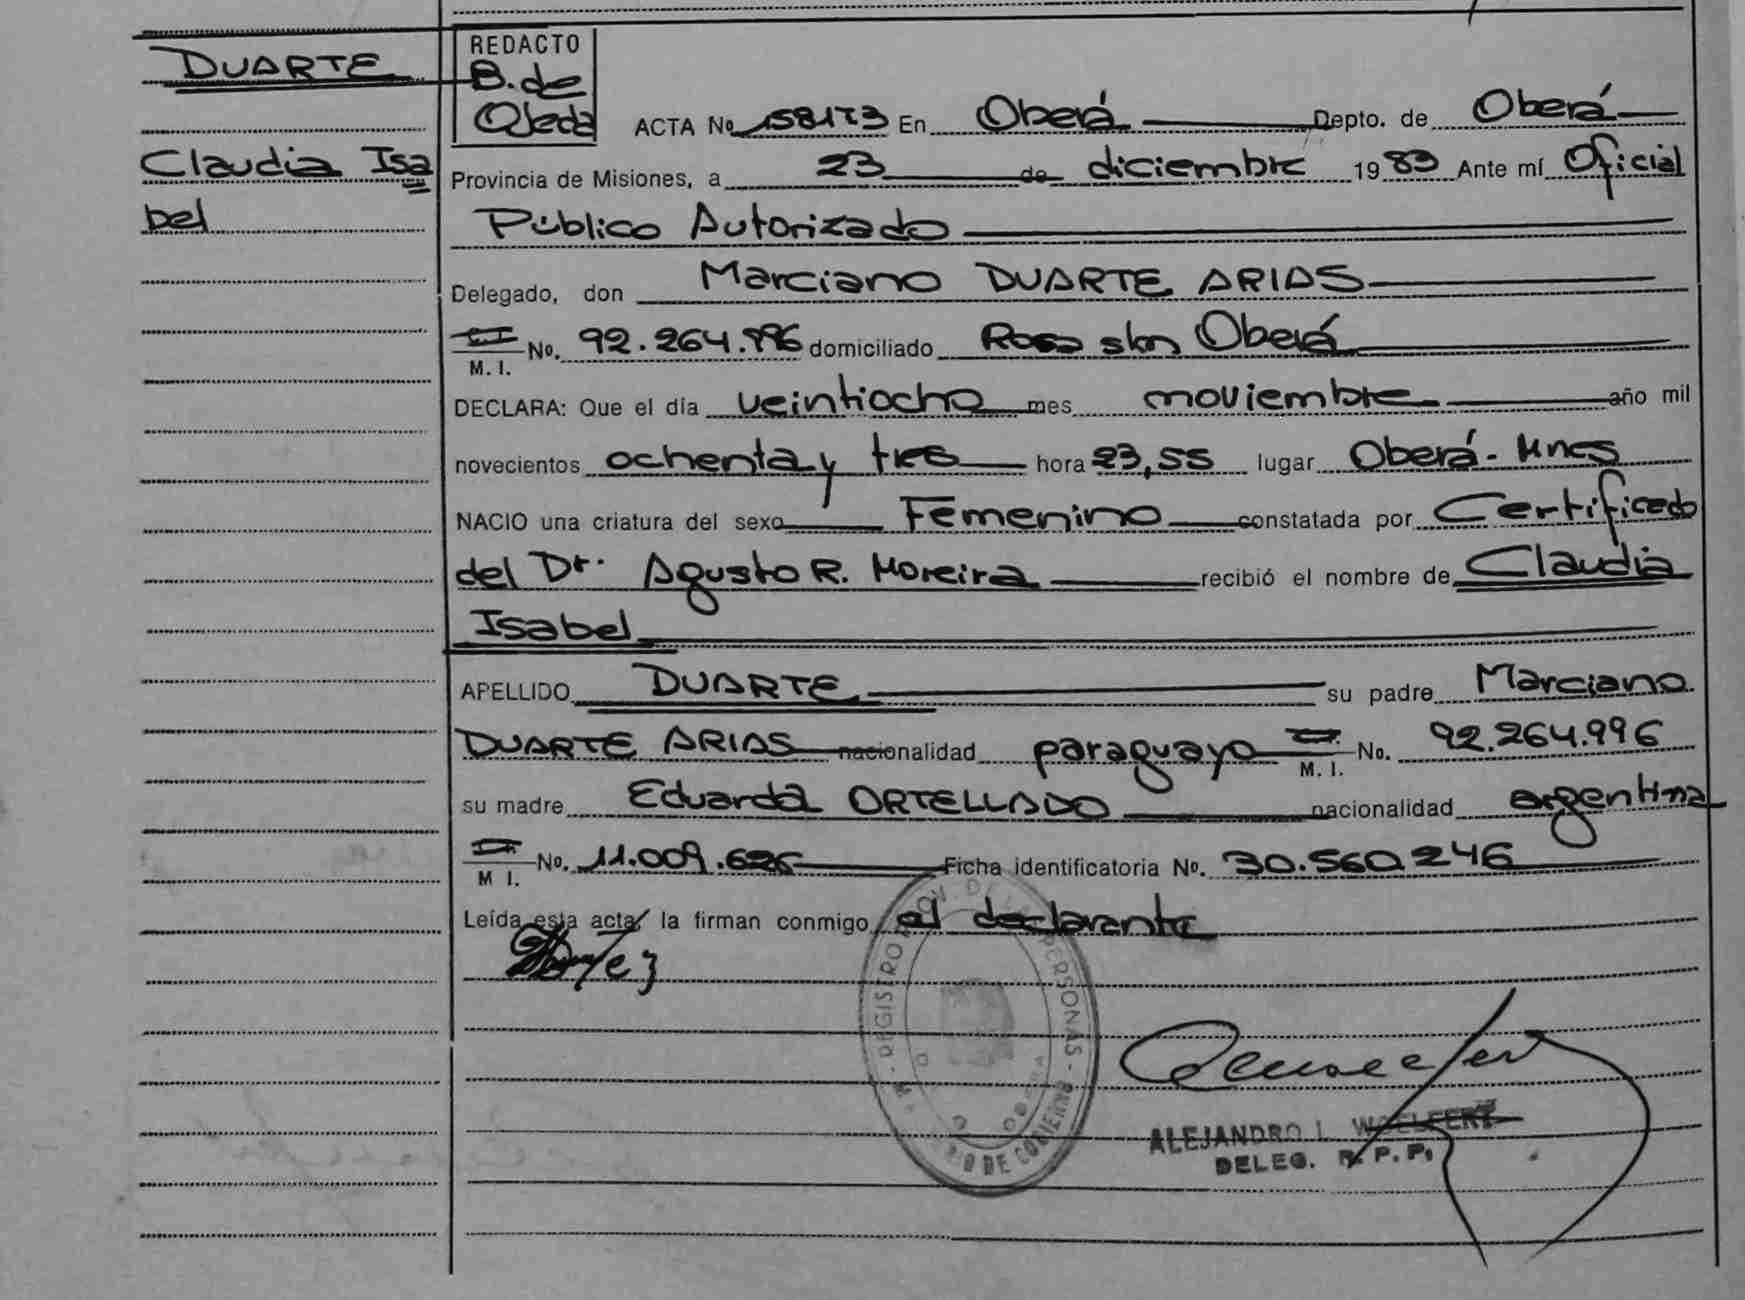 DUARTE
Claudia Isa
bel
REDACTO
B. de
Ojeda
ACTA No 158173 En Oberá Depto. de Oberá
Provincia de Misiones, a 23 de diciembre 1983 Ante mí Oficial
Público Autorizado
Delegado, don Marciano DUARTE ARIAS
M. I. No. 92.264.996 domiciliado Rosa s/n Oberá
DECLARA: Que el día veintiocho mes noviembre año mil
novecientos ochenta y tres hora 23,55 lugar Oberá - Mnes
NACIO una criatura del sexo Femenino constatada por Certificado
del Dr. Agusto R. Moreira recibió el nombre de Claudia
Isabel
APELLIDO DUARTE su padre Marciano
DUARTE ARIAS nacionalidad paraguayo M. I. No. 92.264.996
su madre Eduarda ORTELLADO nacionalidad argentina
M I. No. 11.009.626 Ficha identificatoria No. 30.560.246
Leída esta acta, la firman conmigo el declarante
REGISTRO PERSONAS
ALEJANDRO I. WOELFERT
DELEG. R. P. P.